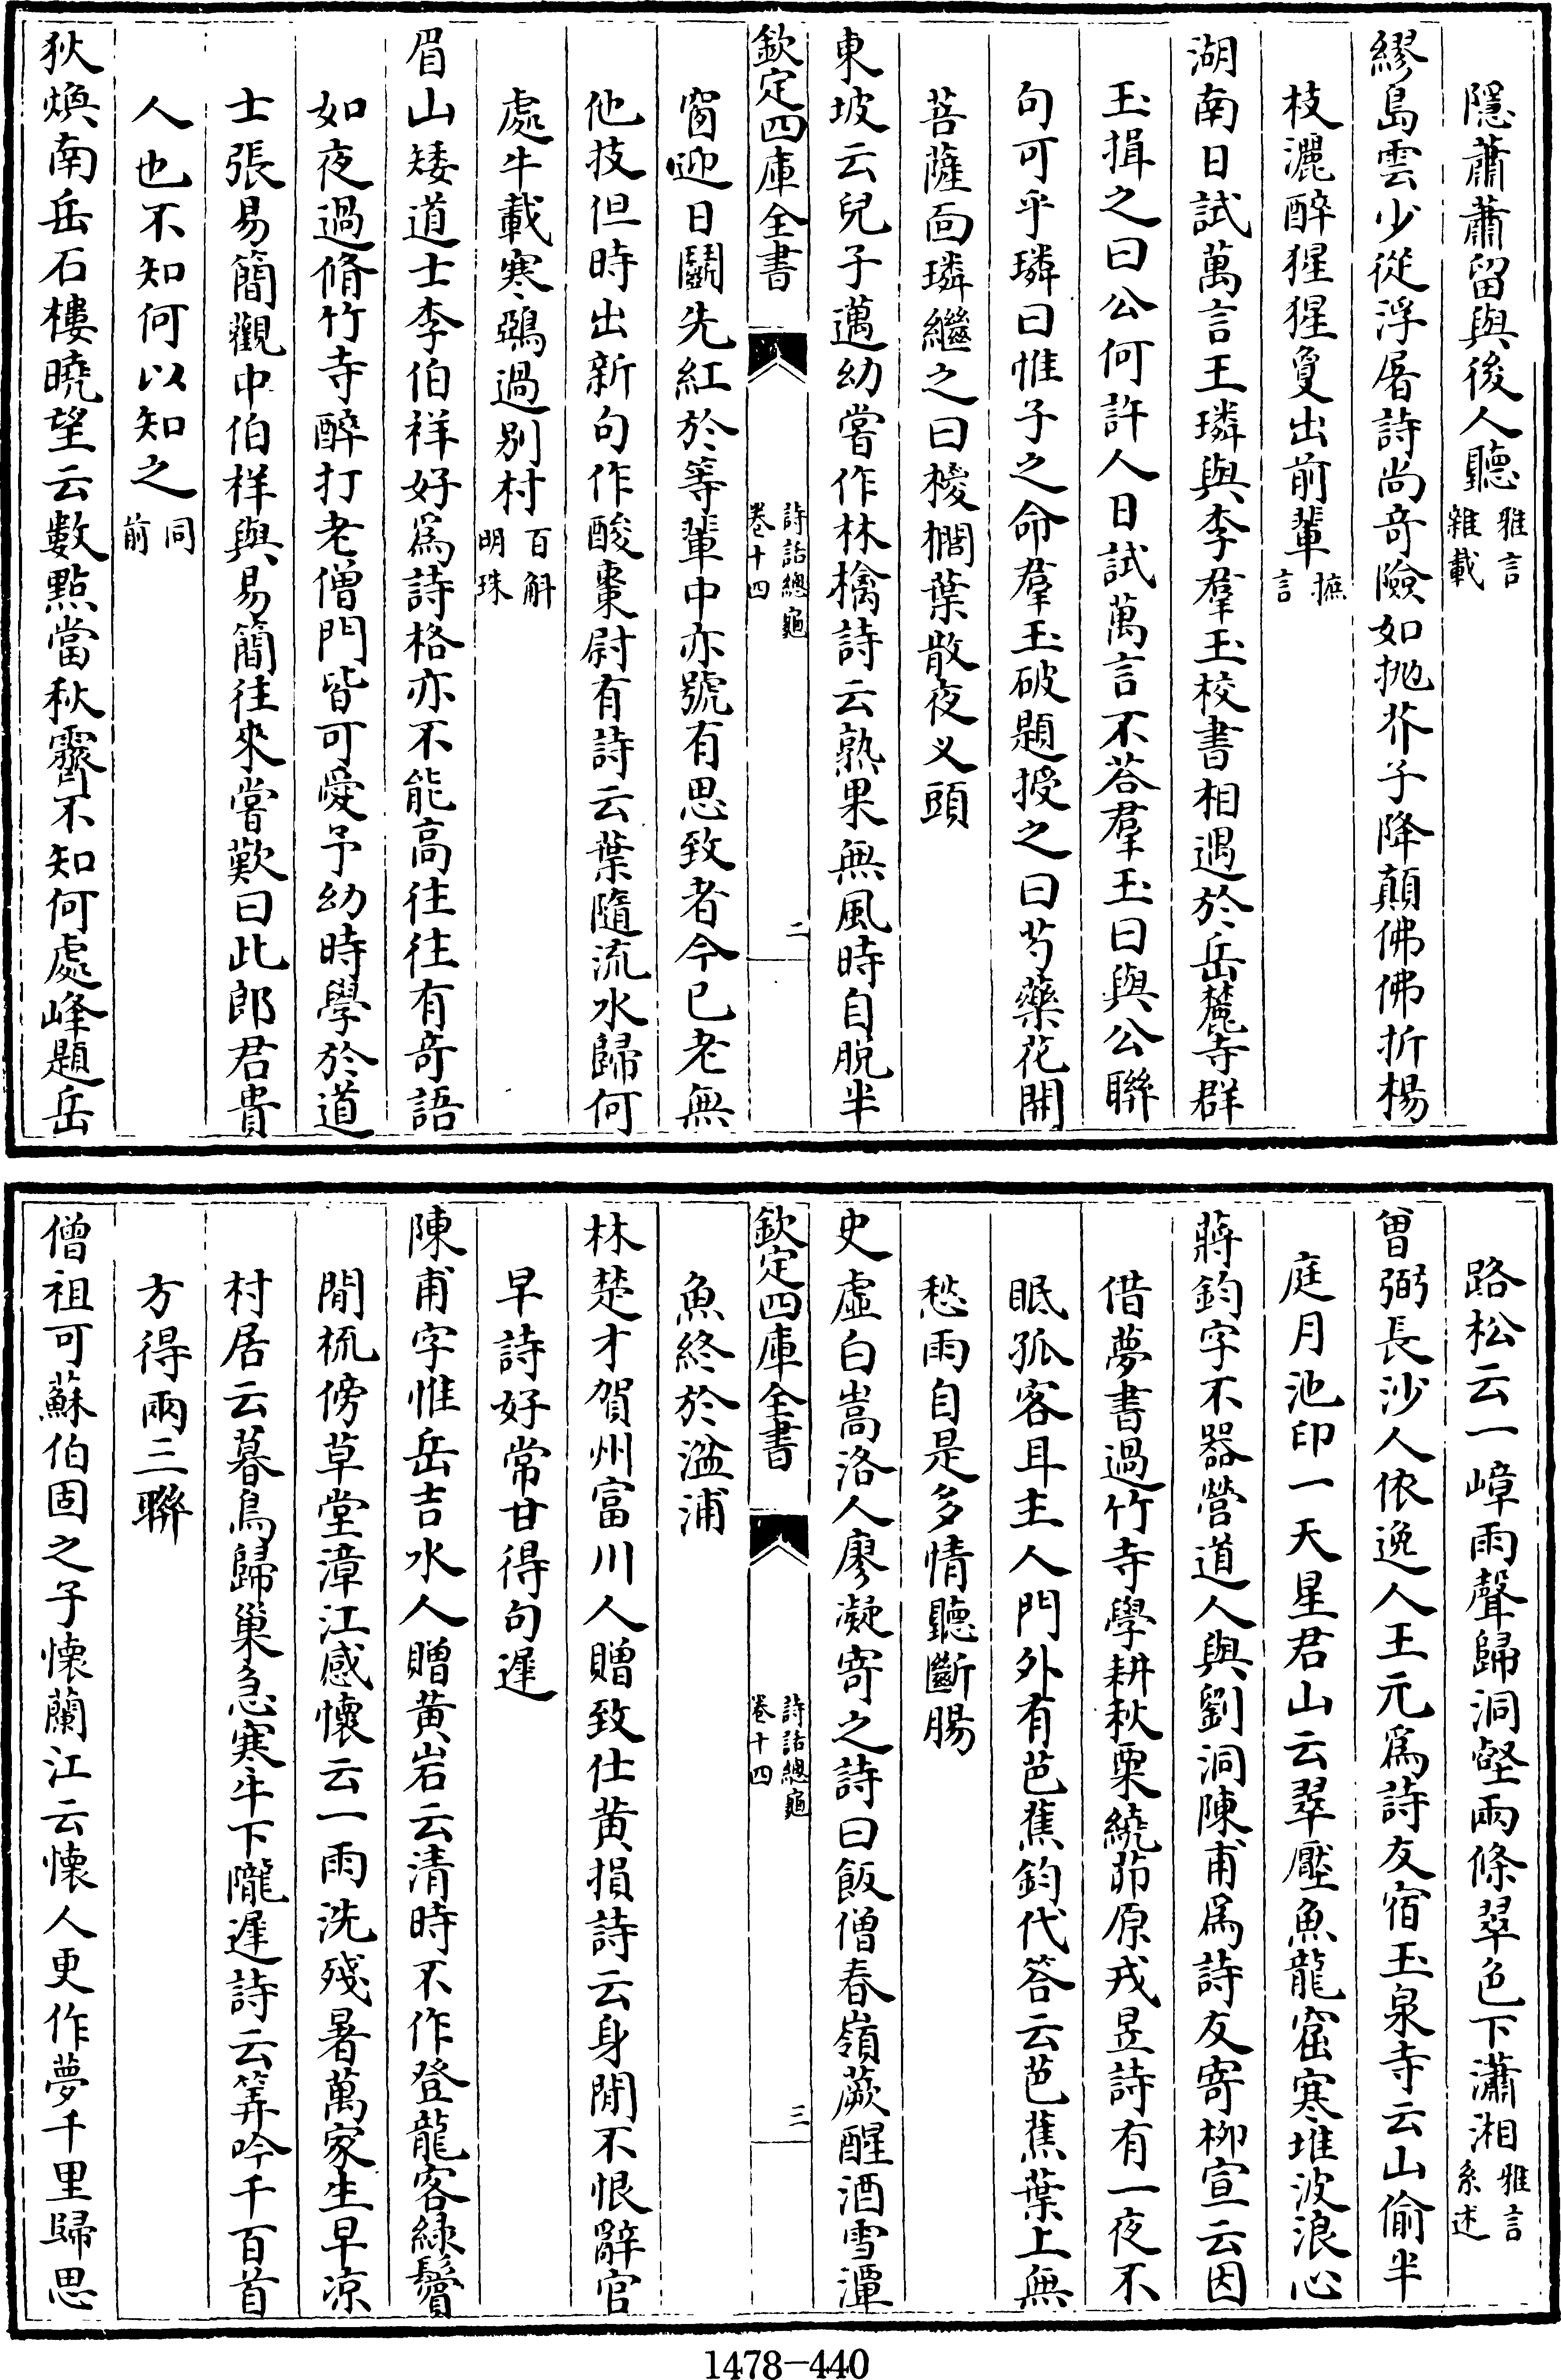 隱蕭蕭留與後人聽雅言雜載
繆島雲少從浮屠詩尚奇險如抛芥子降顛佛佛折楊
枝灑醉猩猩敻出前輩摭言
湖南日試萬言王璘與李羣玉校書相遇於岳麓寺群
玉揖之曰公何許人日試萬言不荅羣玉曰與公聯
句可乎璘曰惟子之命羣玉破題授之曰芍藥花開
菩薩面璘繼之曰椶櫚葉散夜义頭
東坡云兒子邁幼嘗作林檎詩云熟果無風時自脱半
欽定四庫全書
詩話總龜
卷十四
二
窗迎日鬭先紅於等輩中亦號有思致者今已老無
他技但時出新句作酸棗尉有詩云葉隨流水歸何
處牛載寒鵶過别村百斛明珠
眉山矮道士李伯祥好為詩格亦不能高往往有奇語
如夜過脩竹寺醉打老僧門皆可愛予幼時學於道
士張易簡觀中伯样與易簡往來嘗歎曰此郎君貴
人也不知何以知之同前
狄煥南岳石樓曉望云數點當秋霽不知何處峰題岳
路松云一嶂雨聲歸洞壑兩條翠色下瀟湘雅言系述
曾弼長沙人依逸人王元為詩友宿玉泉寺云山偷半
庭月池印一天星君山云翠壓魚龍窟寒堆波浪心
蔣鈞字不器營道人與劉洞陳甫為詩友寄柳宣云因
借夢書過竹寺學耕秋粟繞茆原戎昱詩有一夜不
眠孤客耳主人門外有芭蕉鈞代答云芭蕉葉上無
愁雨自是多情聽斷腸
史虛白嵩洛人廖凝寄之詩曰飯僧春嶺蕨醒酒雪潭
欽定四庫全書
詩話總龜
卷十四
三
魚終於湓浦
林楚才賀州富川人贈致仕黄損詩云身閒不恨辭官
早詩好常甘得句遲
陳甫字惟岳吉水人贈黄岩云清時不作登龍客綠鬢
閒梳傍草堂漳江感懷云一雨洗殘暑萬家生早凉
村居云暮鳥歸巢急寒牛下隴遲詩云筭吟千百首
方得兩三聯
僧祖可蘇伯固之子懷蘭江云懷人更作夢千里歸思
1478-440